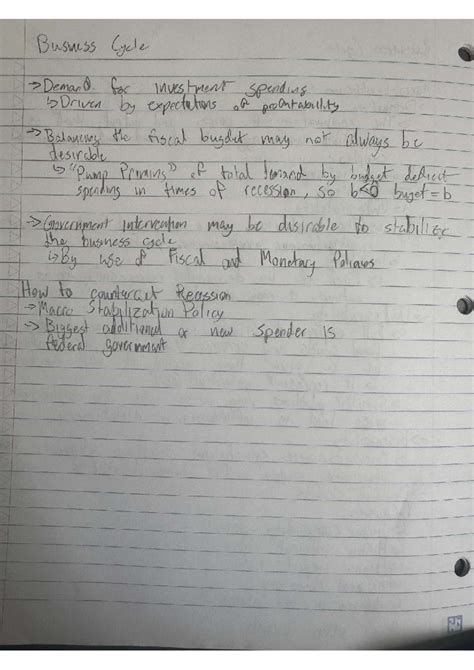 Business Cycle
→Demand for investment spending
↳Driven by expectations of profitability
→Balancing the fiscal bugdet may not always be
desirable
↳"Pump Priming" of total demand by budget deficit
spending in times of recession, so b<0 buget=b
→Government intervention may be disirable to stabilize
the business cycle
↳By use of Fiscal and Monetary Policies
How to counteract Recession
→Macro Stabilization Policy
→Biggest additional or new spender is
federal government